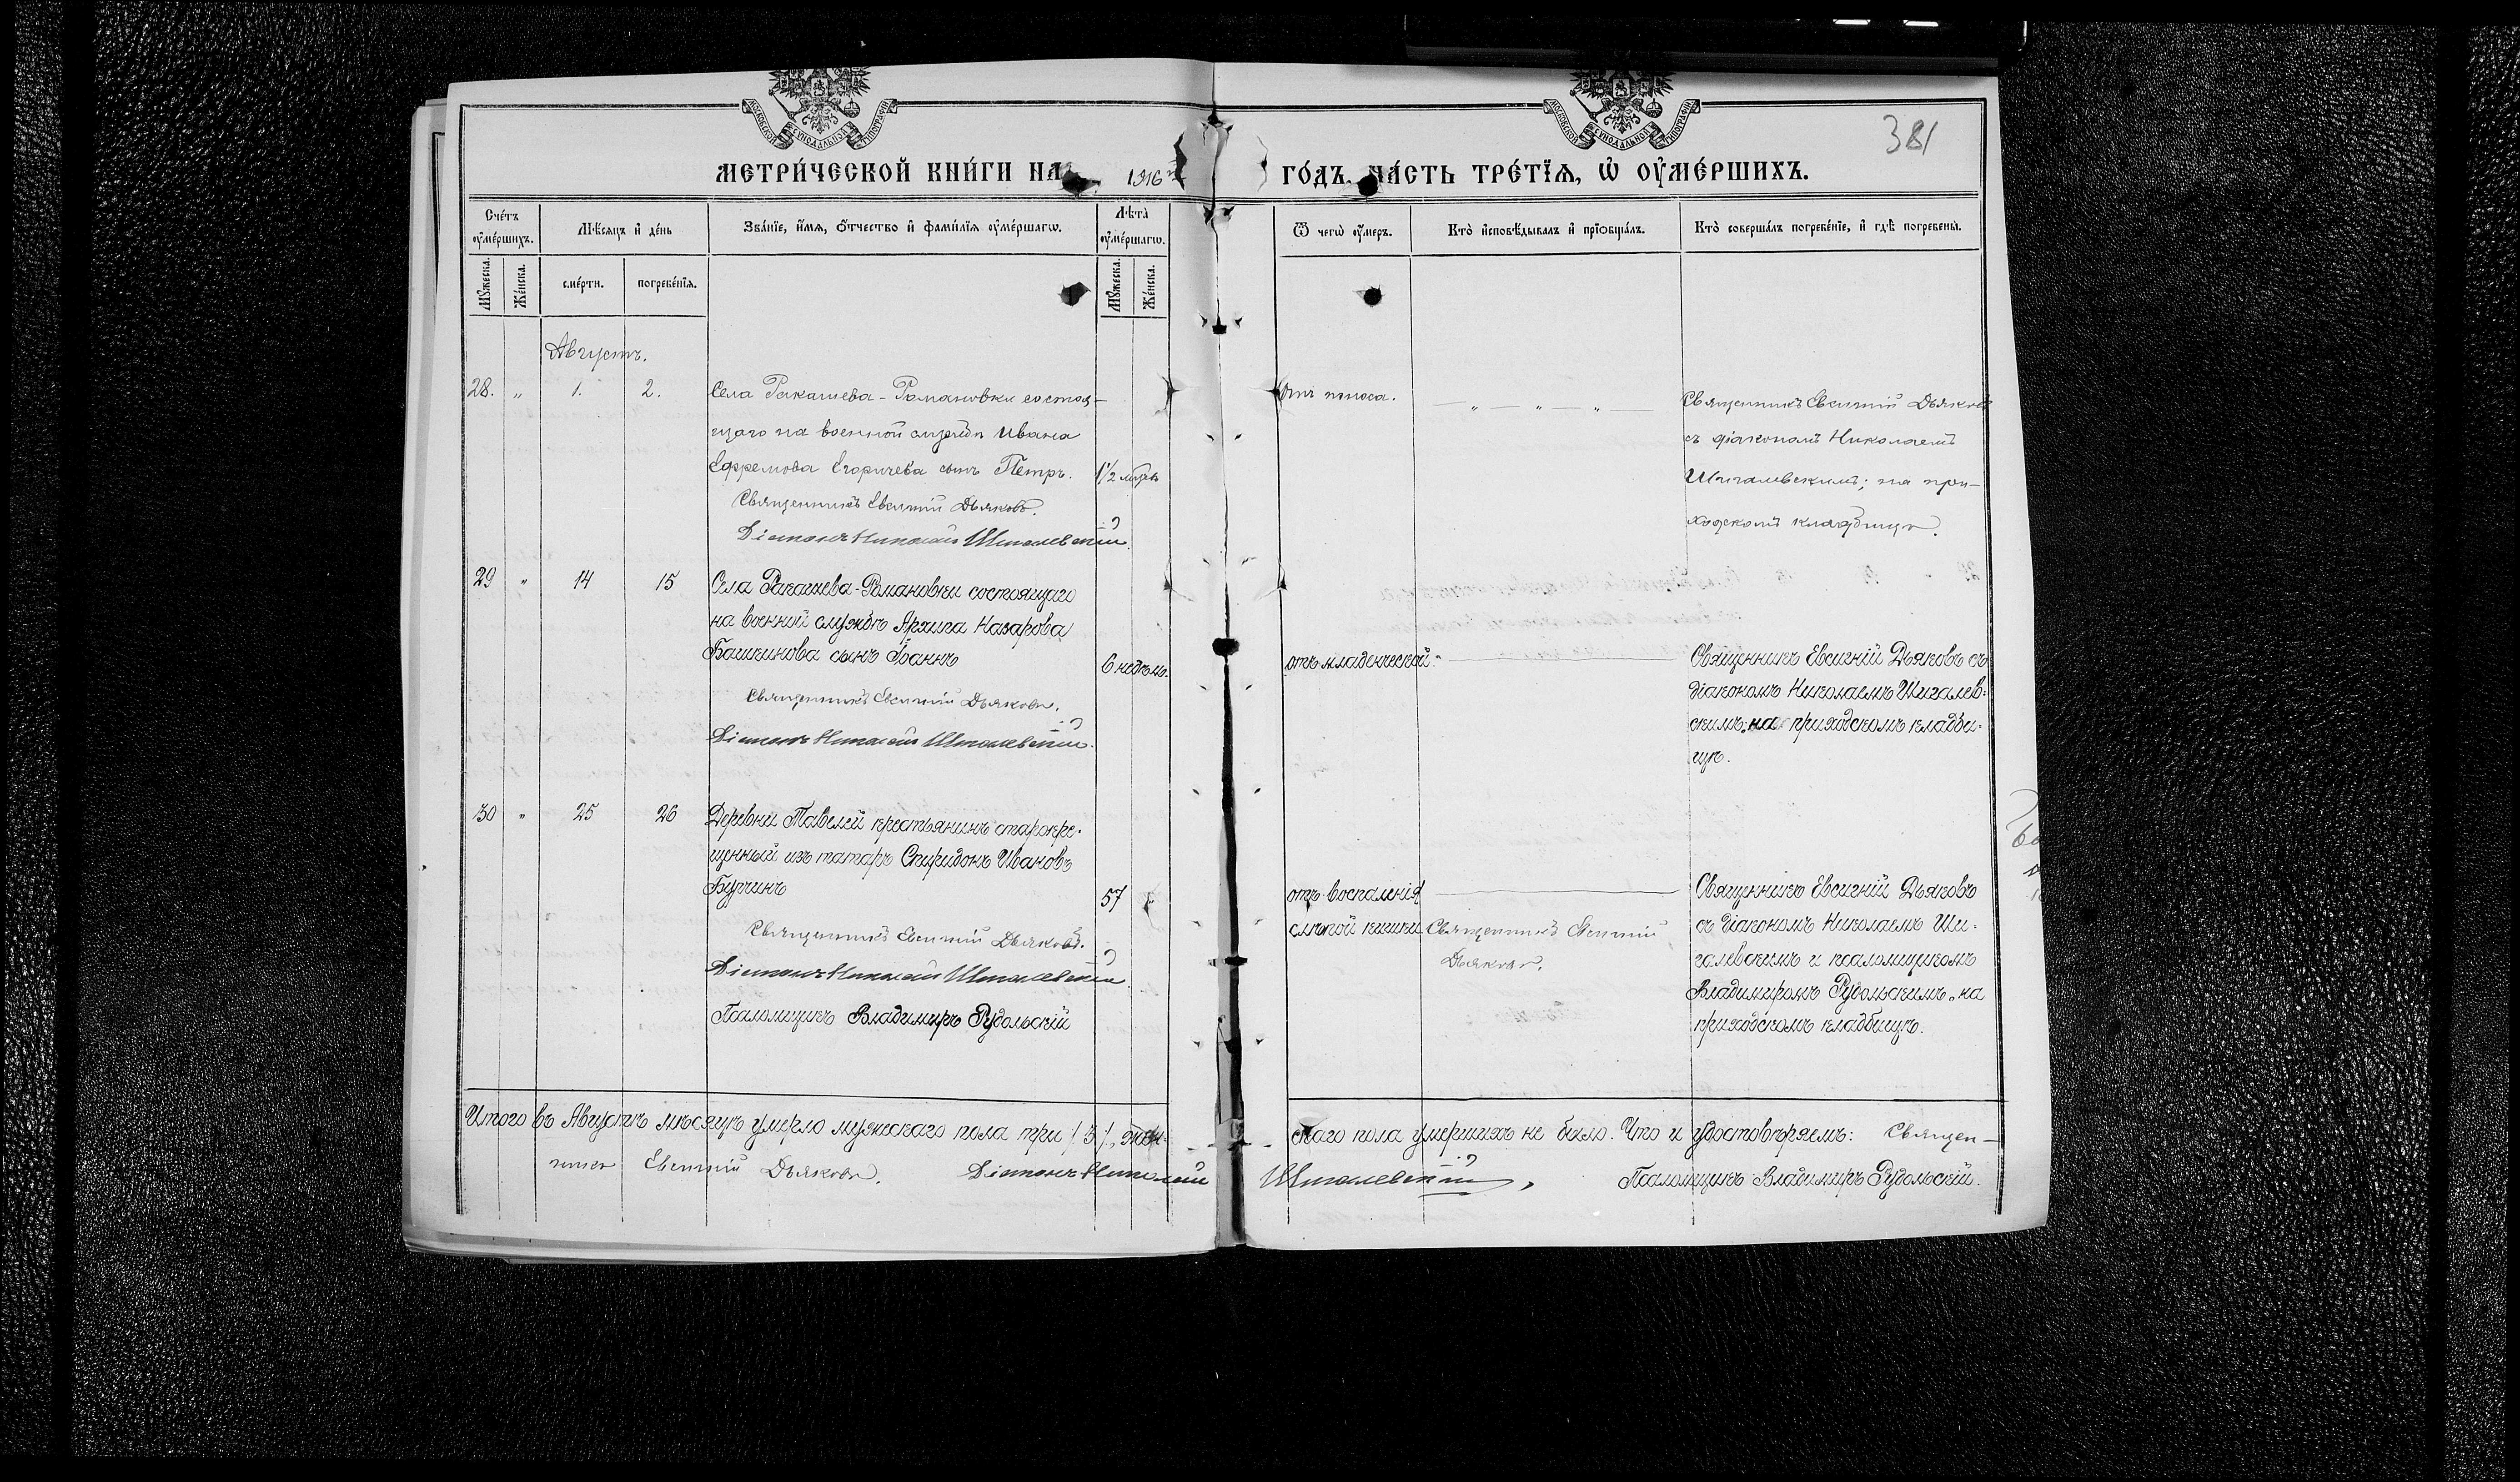 МОСКОВСКОЙ СѴНОДАЛЬНОЙ ТИПОГРАФІИ
МОСКОВСКОЙ СѴНОДАЛЬНОЙ ТИПОГРАФІИ
381
МЕТРИ́ЧЕСКОЙ КНИ́ГИ НА 1916 ГО́ДЪ, ЧА́СТЬ ТРЕ́ТЇѦ, Ѡ҆ ОУ҆МЕ́РШИХЪ.
Сче́тъ оу҆ме́ршихъ.
Мѣ́сяцъ и҆ де́нь
Зва́нїе, и҆́мѧ, ѻ҆́тчество и҆ фами́лїѧ оу҆ме́ршагѡ.
Лѣ́та оу҆ме́ршагѡ.
Ѿ чегѡ̀ оу҆́меръ.
Кто̀ и҆сповѣ́дывалъ и҆ прїѡбща́лъ.
Кто̀ соверша́лъ погребе́нїе, и҆ гдѣ̀ погребены̀.
Мꙋ́жеска.
Же́нска.
сме́рти.
погребе́нїѧ.
Мꙋ́жеска.
Же́нска.
Августъ.
28. " 1. 2.
Села Ракашева-Романовки состоя-
щаго на военной службѣ Ивана
Ефремова Егоричева сынъ Петръ.
1½ мѣсяц
Священникъ Евсигній Дьяковъ.
Діаконъ Николай Шигалевскій.
отъ поноса.
— " — " — " —
Священникъ Евсигній Дьяковъ
съ діакономъ Николаемъ
Шигалевскимъ; на при-
ходскомъ кладбищѣ.
29 " 14 15
Села Ракашева-Романовки состоящаго
на военной службѣ Архипа Назарова
Башкинова сынъ Іоаннъ
6 недѣль.
Священникъ Евсигній Дьяковъ.
Діаконъ Николай Шигалевскій.
отъ младенческой.
Священникъ Евсигній Дьяковъ съ
діакономъ Николаемъ Шигалев-
скимъ, на приходскомъ кладби-
щѣ.
30 " 25 26
Деревни Тавелей крестьянинъ старокре-
щенный изъ татаръ Спиридонъ Ивановъ
Бурчинъ
57
Священникъ Евсигній Дьяковъ.
Діаконъ Николай Шигалевскій.
Псаломщикъ Владимиръ Рудольскій
отъ воспаленія
слѣпой кишки
Священникъ Евсигній
Дьяковъ.
Священникъ Евсигній Дьяковъ
съ діакономъ Николаемъ Ши-
галевскимъ и псаломщикомъ
Владимиромъ Рудольскимъ, на
приходскомъ кладбищѣ.
Итого въ Августѣ мѣсяцѣ умерло мужескаго пола три /3/, жен-
скаго пола умершихъ не было. Что и удостовѣряемъ: Священ-
никъ Евсигній Дьяковъ. Діаконъ Николай Шигалевскій, Псаломщикъ Владимиръ Рудольскій.